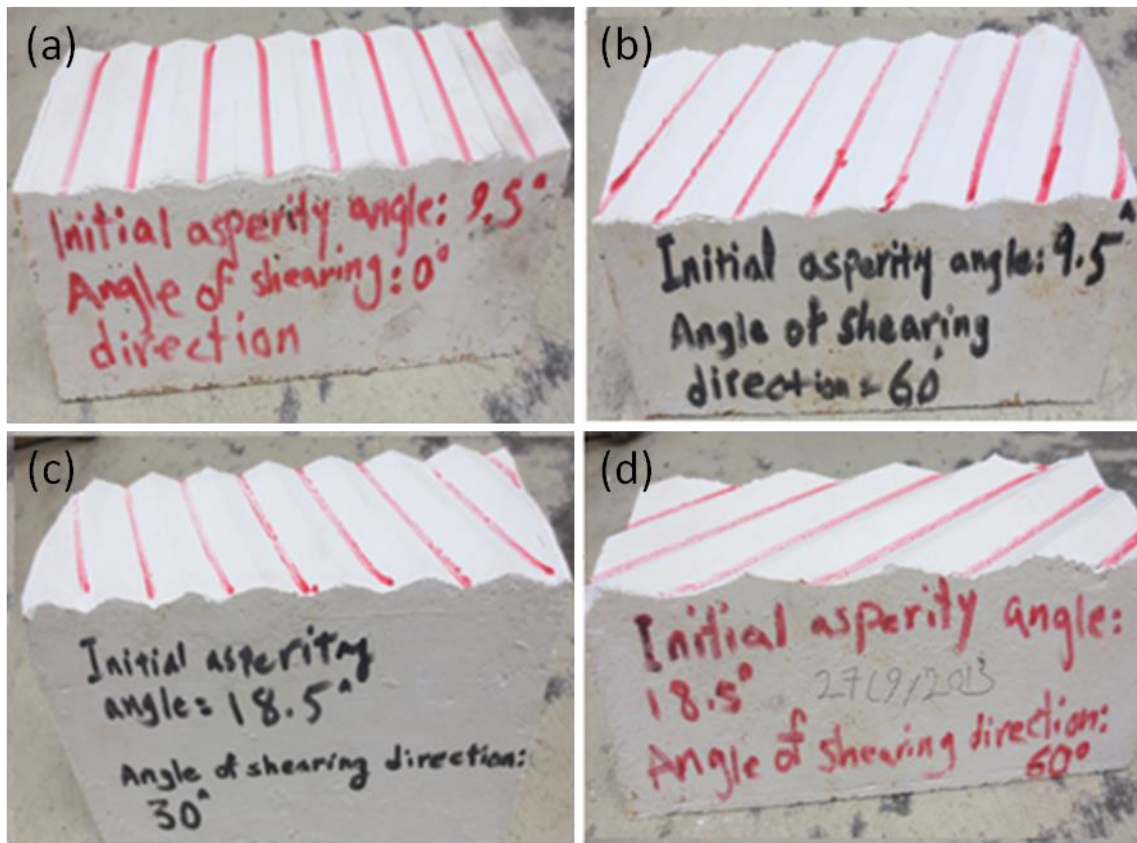 (a)
Initial asperity angle: 9.5°
Angle of shearing: 0°
direction
(b)
Initial asperity angle: 9.5°
Angle of shearing
direction = 60°
(c)
Initial asperitny
angle = 18.5°
Angle of shearing direction:
30°
(d)
Initial asperity angle:
18.5°
27/9/2013
Angle of shearing direction:
60°